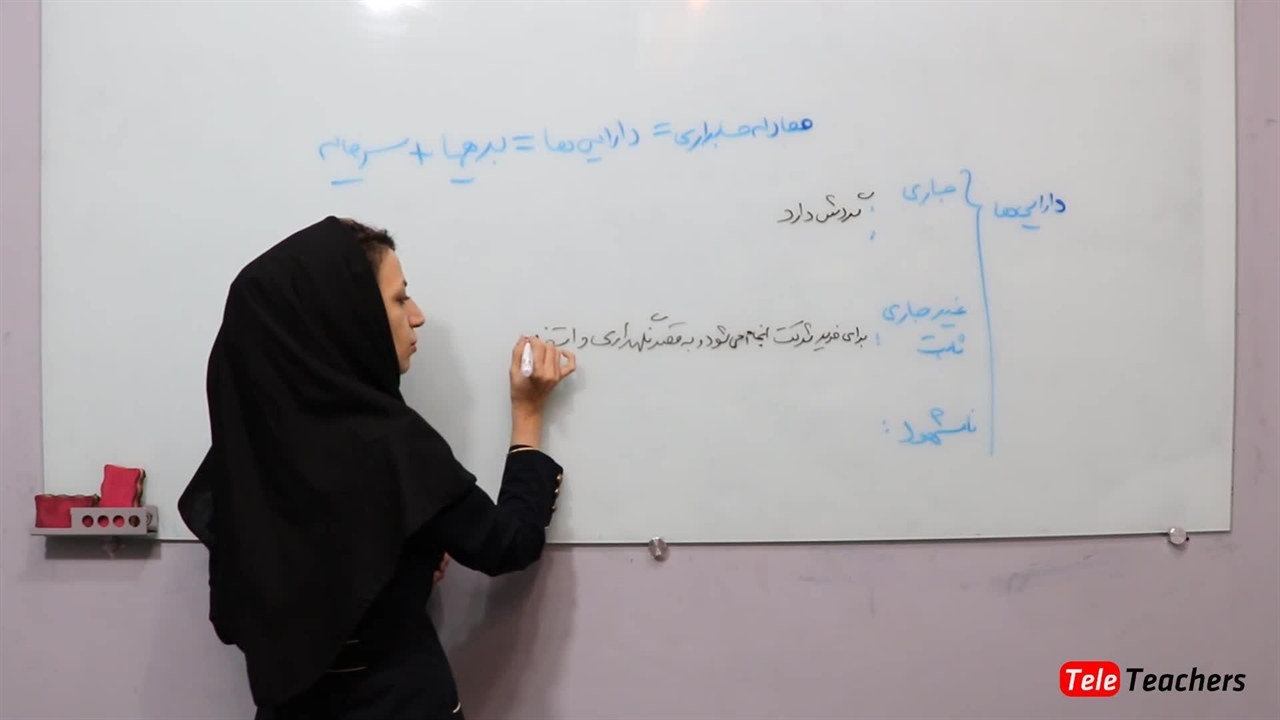 معادله حسابداری = دارایی‌ها = بدهیها + سرمایه
دارایی‌ها
جاری : گردش دارد
غیر جاری
ثابت : برای خرید شرکت انجام می‌شود و به قصد نگهداری و
نامشهود :
Tele Teachers